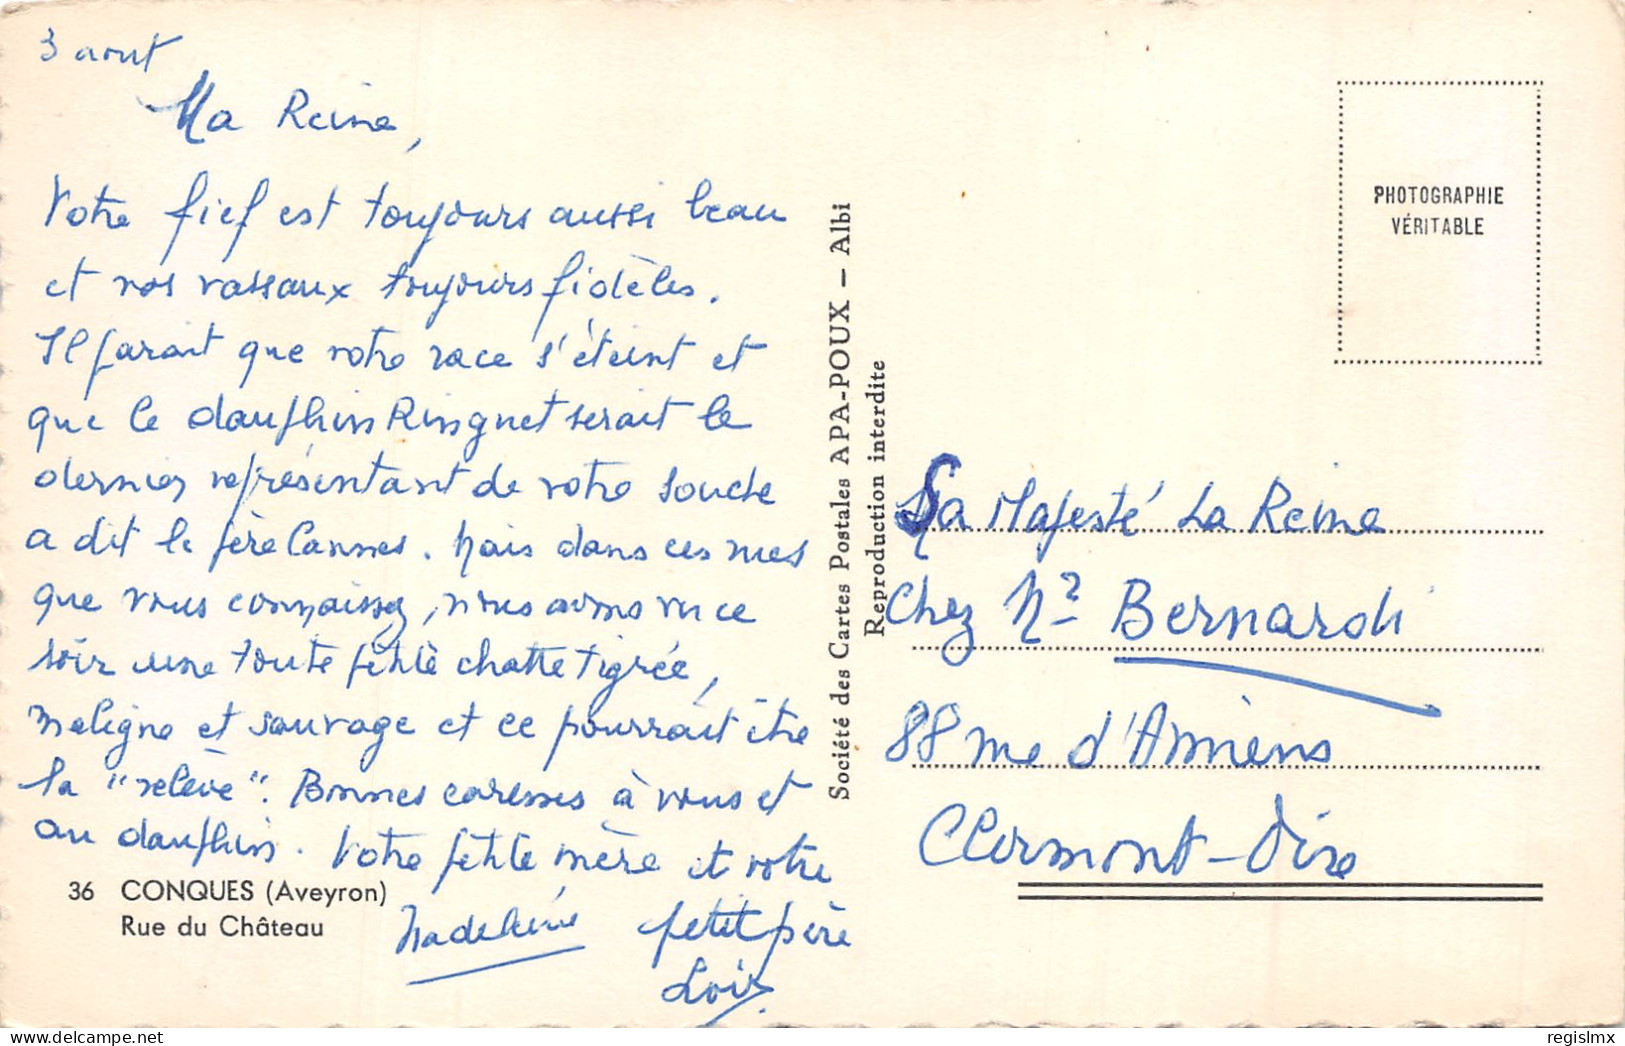 3 aout
Ma Reine,
Votre fief est toujours aussi beau
et vos vassaux toujours fidèles.
Il parait que votre race s'éteint et
que le dauphin Rinsgnet serait le
dernier représentant de votre souche
a dit le père Cannes. Mais dans ces rues
que vous connaissez, nous avons vu ce
soir une toute petite chatte tigrée,
maligne et sauvage et ce pourrait être
la "relève". Bonnes caresses à vous et
au dauphin. Votre petite mère et votre
Madeleine petit père
Loir
36 CONQUES (Aveyron)
Rue du Château
Société des Cartes Postales APA-POUX - Albi
Reproduction interdite
PHOTOGRAPHIE
VÉRITABLE
Sa Majesté La Reine
Chez Mr Bernardi
88 rue d'Amiens
Clermont-Oise
regislmx